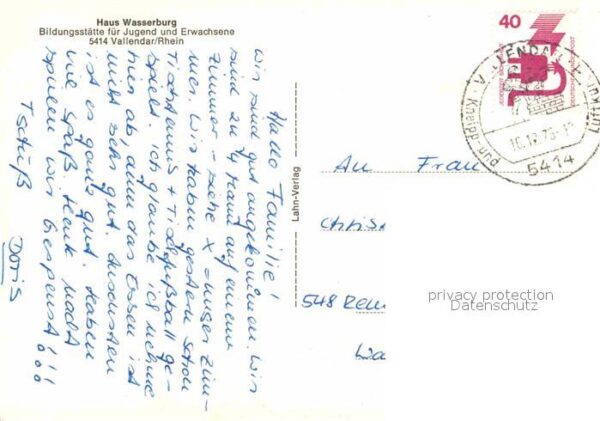 Haus Wasserburg
Bildungsstätte für Jugend und Erwachsene
5414 Vallendar/Rhein
Hallo Familie!
Wir sind gut angekommen. Wir
sind zu 4 Mann auf einem
Zimmer – siehe X = unser Zim-
mer. Wir haben gestern schon
Tischtennis + Tischfußball ge-
spielt. Ich glaube ich nehme
hier ab, denn das Essen ist
nicht sehr gut. Ansonsten
ist es ganz gut. Haben
viel Spaß. Heute Nacht
spielen wir Gespenst!!!
Tschüß
Doris
Lahn-Verlag
40
VALLENDAR
Kneipp- und Luftkurort
10.12.75
5414
An Frau
Chris
548 Rem
privacy protection
Datenschutz